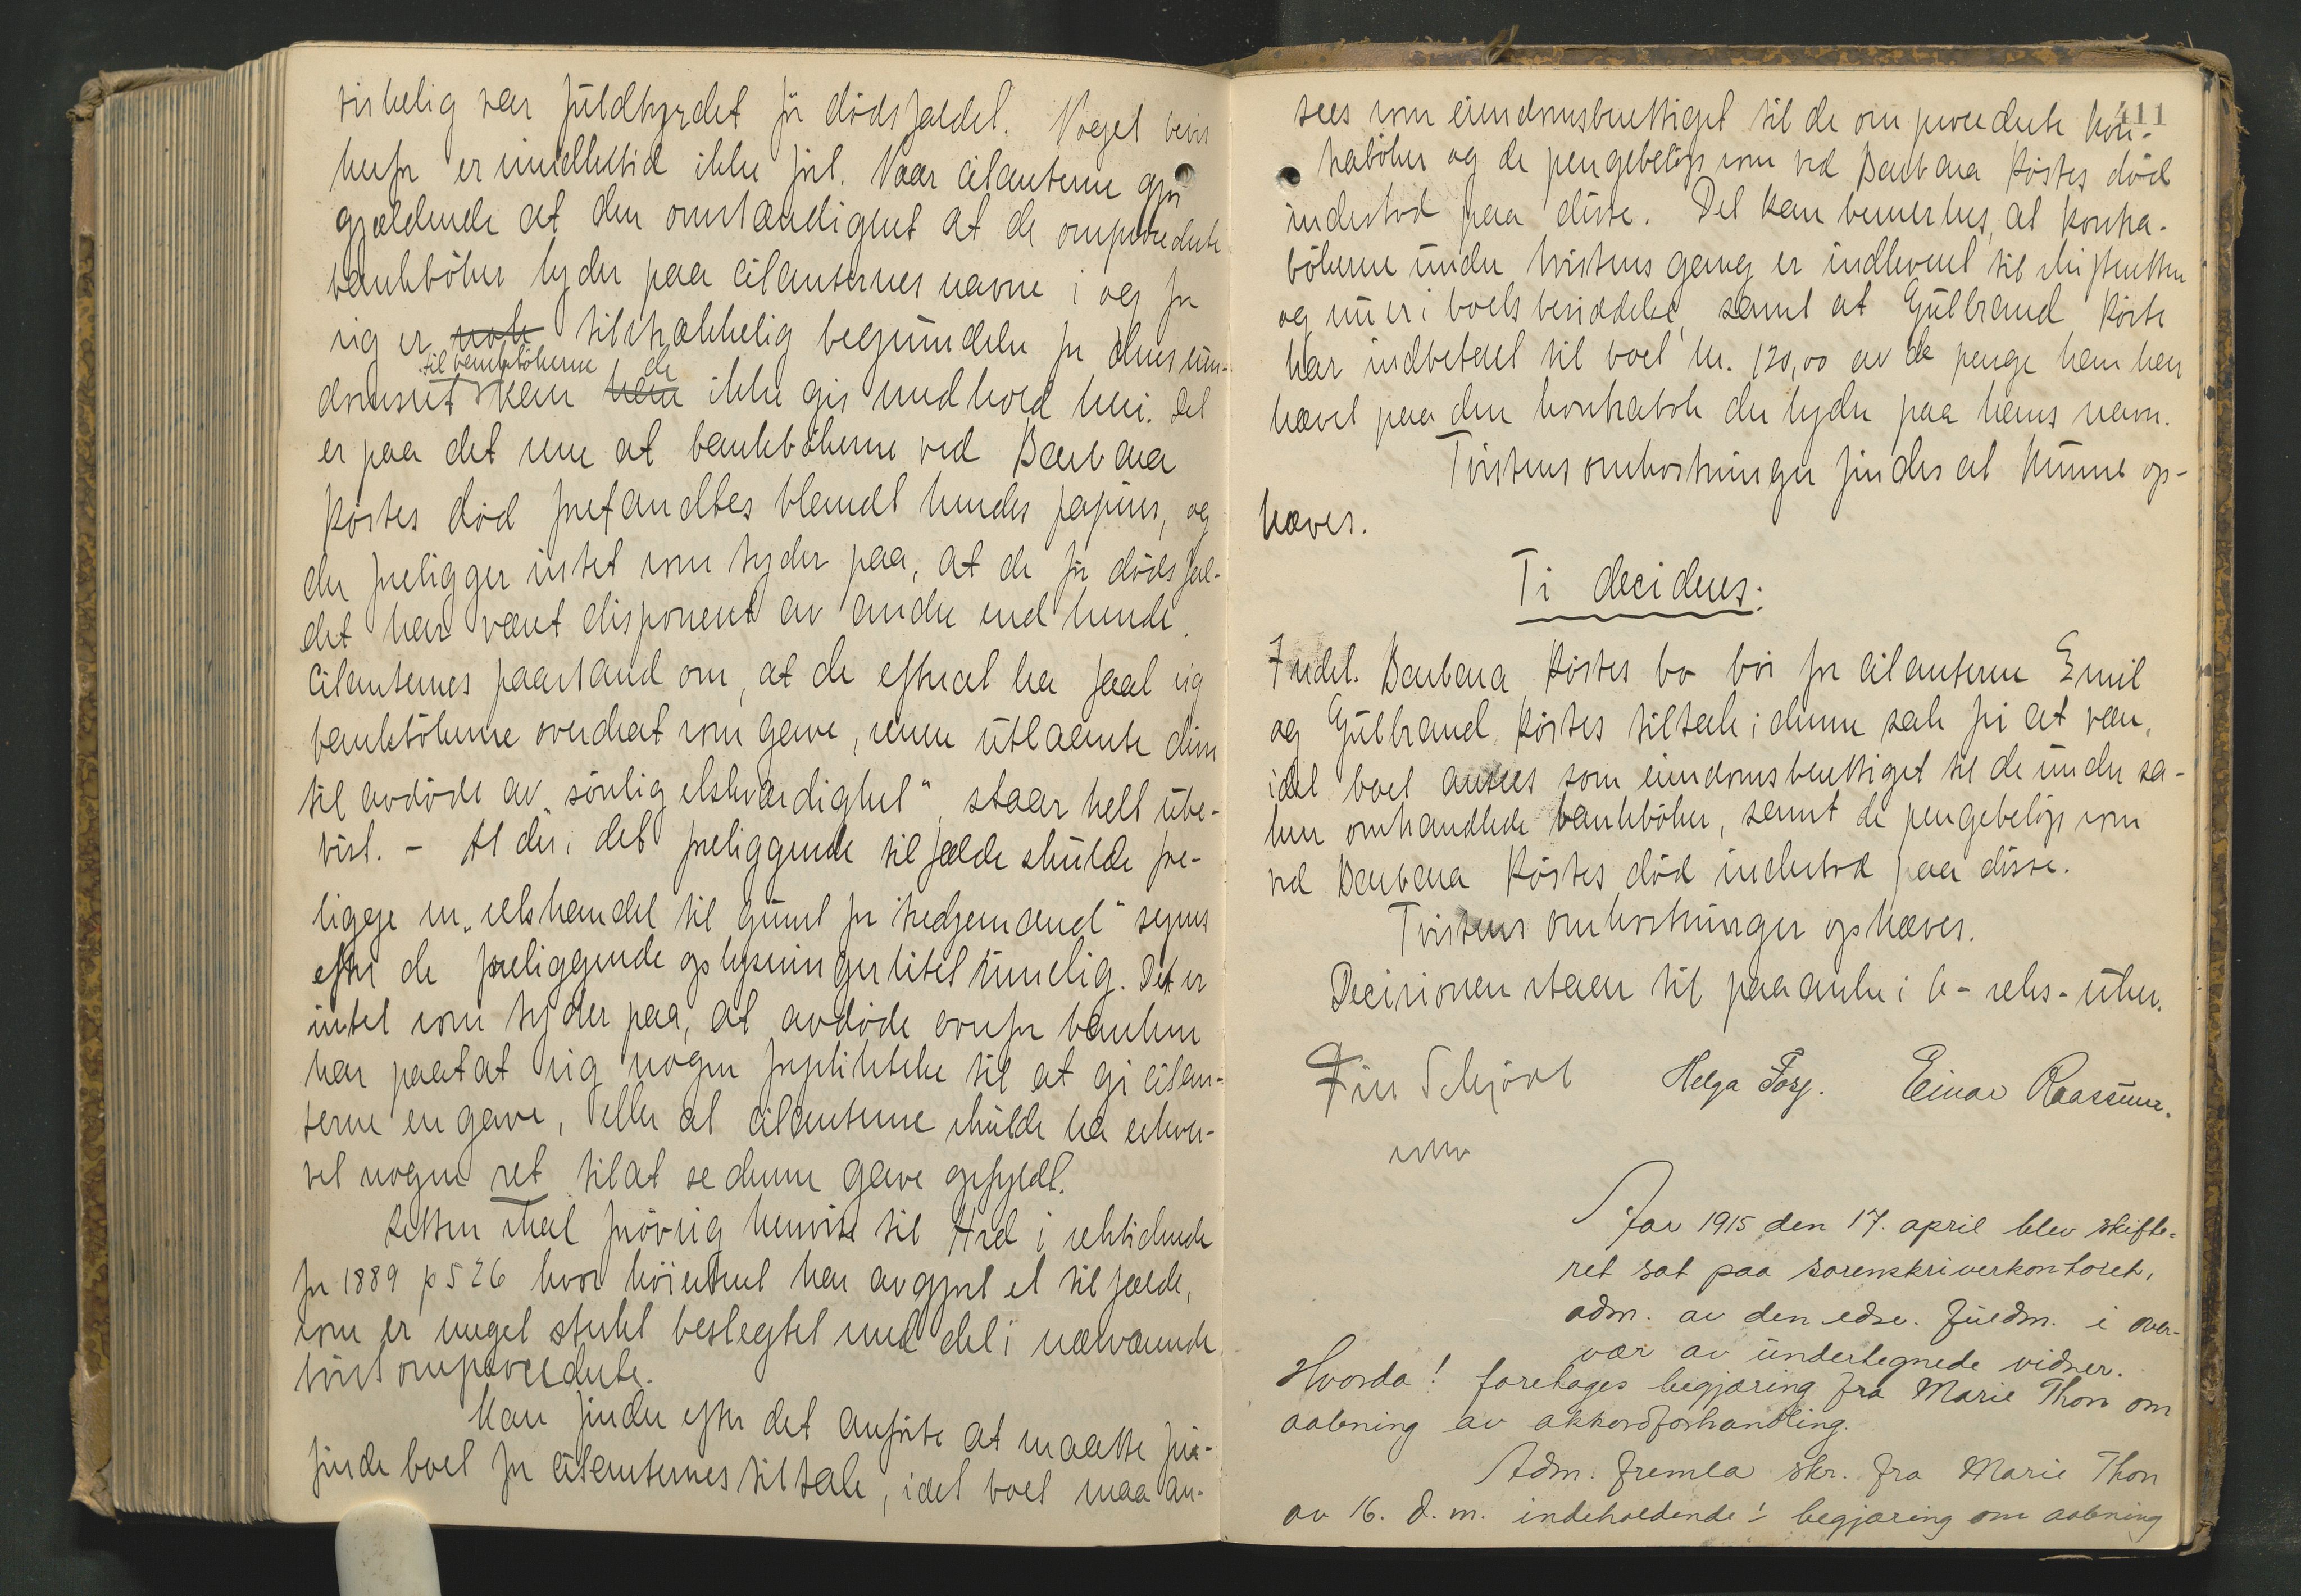 virkelig var fuldbyrdet før dødsfaldet. Noget bevis
herfor er imidlertid ikke ført. Naar citanterne gjør
gjældende at den omstændighet at de omprocederte
bankbøker lyder paa citanternes navne i og for
sig er nok tilstrækkelig begrundelse for deres eien-
domsret til bankbøkerne kan han de ikke gis medhold heri. Det
er paa det rene at bankbøkerne ved Barbara
Kostes død forefandtes blandt hendes papirer, og
der foreligger intet som tyder paa, at de før dødsfal-
det har været disponert av andre end hende.
Citanternes paastand om, at de efterat ha faat sig
bankbøkerne overdrat som gave, igjen utlaante dem
til avdøde av "sønlig elskværdighet", staar helt ube-
vist. – At der i det foreliggende tilfælde skulde fore-
ligge en "retshandel til gunst for tredjemand" synes
efter de foreliggende oplysninger litet rimelig. Det er
intet som tyder paa, at avdøde overfor banken
har paatat sig nogen forpliktelse til at gi citan-
terne en gave, eller at citanterne skulde ha erhver-
vet nogen ret til at se denne gave opfyldt.
Retten skal forøvrig henvise til Hrd i retstidende
for 1889 p 526 hvor høiesteret har avgjort et tilfælde,
som er meget sterkt beslegtet med det i nærværende
tvist omprocederte.
Man finder efter det anførte at maatte fri-
finde boet for citanternes tiltale, idet boet maa an-
411
sees som eiendomsberettiget til de omprocederte kon-
trabøker og de pengebeløp som ved Barbara Kostes død
indestod paa disse. Det kan bemerkes, at kontra-
bøkerne under tvistens gang er indlevert til skifteretten
og nu er i boets besiddelse, samt at Gulbrand Koste
har indbetalt til boet kr. 120,00 av de penge han har
hævet paa den kontrabok der lyder paa hans navn.
Tvistens omkostninger findes at kunne op-
hæves.
Ti decideres:
Indst. Barbara Kostes bo bør for citanterne Emil
og Gulbrand Kostes tiltale i denne sak fri at være,
idet boet ansees som eiendomsberettiget til de under sa-
ken omhandlede bankbøker, samt de pengebeløp som
ved Barbara Kostes død indestod paa disse.
Tvistens omkostninger ophæves.
Decisionen staar til paaanke i 6 - seks - uker.
Fin Schjövt Helga Forg. Einar Raassum.
Aar 1915 den 17. april blev skifte-
ret sat paa sorenskriverkontoret,
adm. av den edsv. fuldm. i over-
vær av undertegnede vidner.
Hvorda! foretages begjæring fra Marie Thon om
aabning av akkordforhandling.
Adm. fremla skr. fra Marie Thon
av 16. d.m. indeholdende: begjæring om aabning